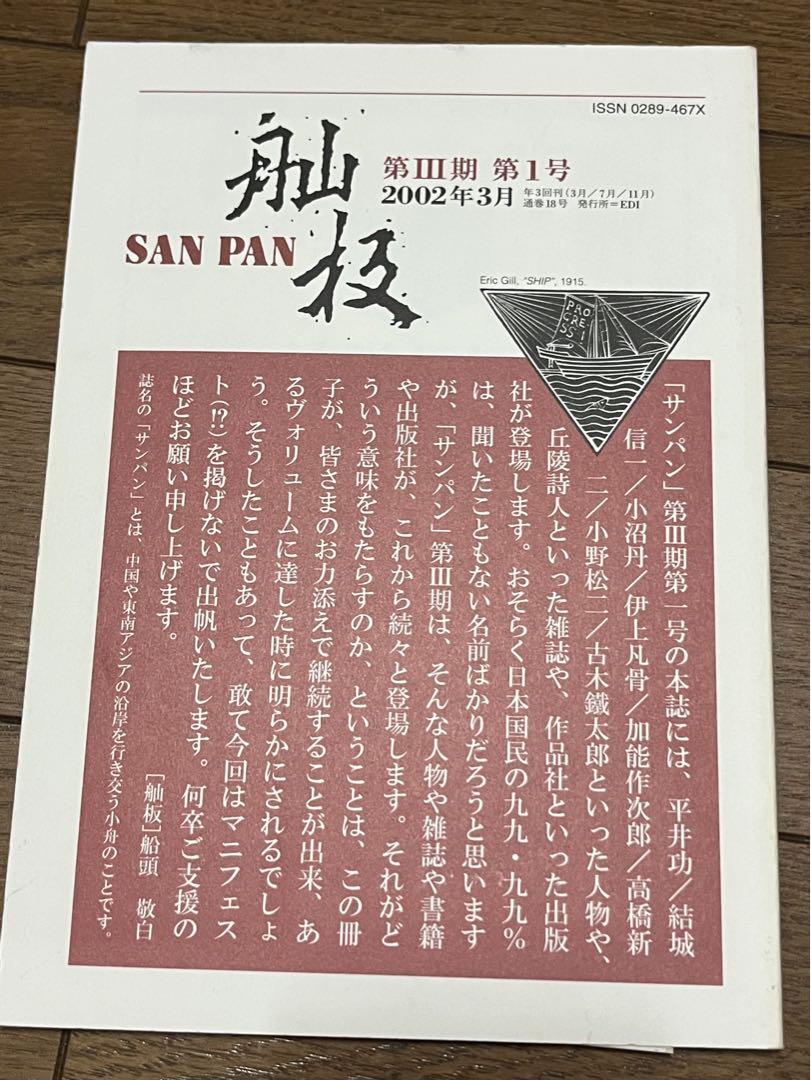 ISSN 0289-467X
舢板
SAN PAN
第III期 第1号
2002年3月
年3回刊(3月/7月/11月)
通巻18号 発行所=EDI
Eric Gill, "SHIP", 1915.
PROGRESS
「サンパン」第III期第一号の本誌には、平井功/結城
信一/小沼丹/伊上凡骨/加能作次郎/高橋新
二/小野松二/古木鐵太郎といった人物や、
丘陵詩人といった雑誌や、作品社といった出版
社が登場します。おそらく日本国民の九九・九九%
は、聞いたこともない名前ばかりだろうと思います
が、「サンパン」第III期は、そんな人物や雑誌や書籍
や出版社が、これから続々と登場します。それがど
ういう意味をもたらすのか、ということは、この冊
子が、皆さまのお力添えで継続することが出来、あ
るヴォリュームに達した時に明らかにされるでしょ
う。そうしたこともあって、敢て今回はマニフェス
ト(!?)を掲げないで出帆いたします。何卒ご支援の
ほどお願い申し上げます。
[舢板]船頭 敬白
誌名の「サンパン」とは、中国や東南アジアの沿岸を行き交う小舟のことです。